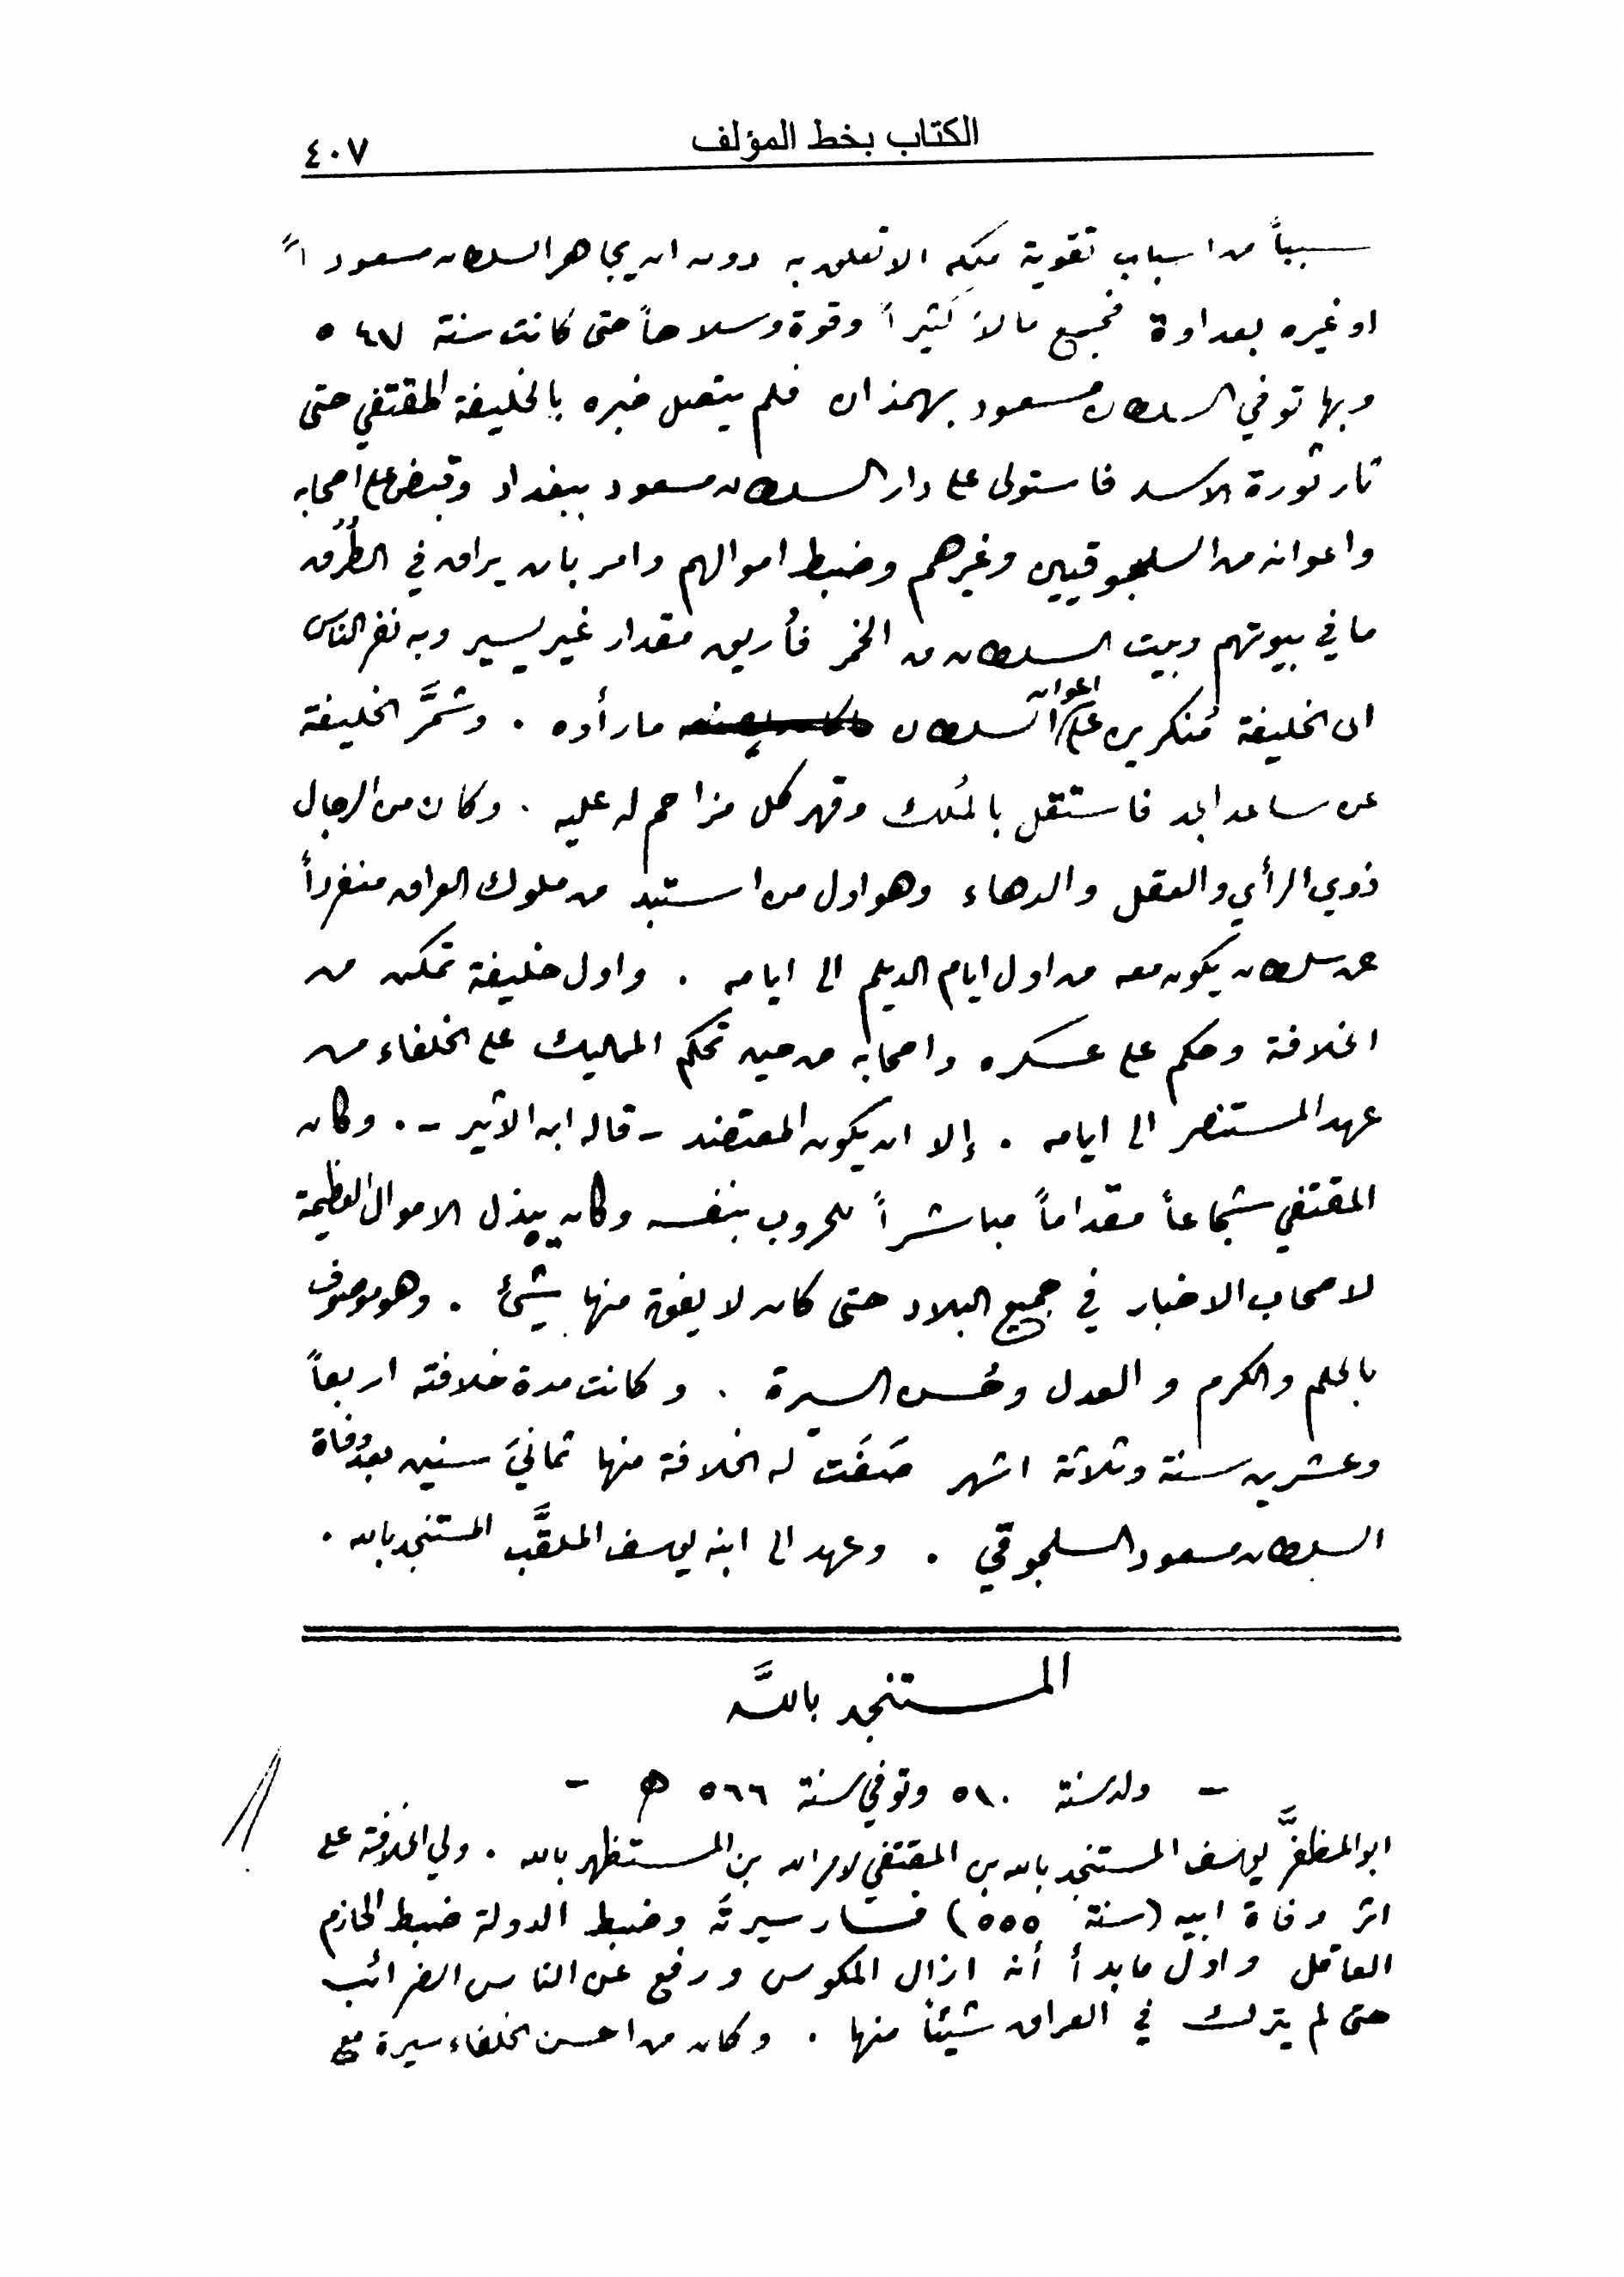 الكتاب بخط المؤلف
٤٠٧
سبباً من اسباب تقوية ملكه الا تعلق به دون ان يجاهر السلطان مسعود اً
او غيره بعداوة فجمع مالاً كثيراً وقوة وسلاحاً حتى كانت سنة ٥٤٧
وبها توفي السلطان مسعود بهمذان فلم يتصل خبره بالخليفة المقتفي حتى
ثار ثورة الاسد فاستولى على دار السلطان مسعود ببغداد وقبض على اصحابه
واعوانه من السلجوقيين وغيرهم وضبط اموالهم وامر بان يراق في الطُرُق
ما في بيوتهم وبيت السلطان من الخمر فأُريق مقدار غير يسير وبه نفر الناس
الى الخليفة مُنكرين على اعوان السلطان ما رأوه . وشمَّر الخليفة
عن ساعد الجد فاستقل بالمُلك وقهر كل مزاحم له عليه . وكان من الرجال
ذوي الرأي والعقل والدهاء وهو اول من استبد من ملوك العراق منفرداً
عن سلطان يكون معه من اول ايام الديلم الى ايامه . واول خليفة تمكن من
الخلافة وحكم على عسكره واصحابه من حين تحكم المماليك على الخلفاء من
عهد المستنصر الى ايامه . إلا ان يكون المعتضد - قاله ابن الاثير - . وكان
المقتفي شجاعاً مقداماً مباشراً للحروب بنفسه وكان يبذل الاموال العظيمة
لاصحاب الاخبار في جميع البلاد حتى كان لا يفوته منها شيئ . وهو موصوف
بالحلم والكرم والعدل وحُسن السيرة . وكانت مدة خلافته اربعاً
وعشرين سنة وثلاثة اشهر صَفَت له الخلافة منها ثمانيَ سنين بعد وفاة
السلطان مسعود السلجوقي . وعهد الى ابنه يوسف الملقَّب المستنجد بالله .
المستنجد باللَّه
- ولد سنة ٥١٠ وتوفي سنة ٥٦٦ هـ -
ابو المظفَّر يوسف المستنجد بالله بن المقتفي لامر الله بن المستظهر بالله . ولي الخلافة على
اثر وفاة ابيه (سنة ٥٥٥) فسار سيرته وضبط الدولة ضبط الحازم
العاقل واول ما بدأ أنه ازال المكوس ورفع عن الناس الضرائب
حتى لم يترك في العراق شيئاً منها . وكان من احسن الخلفاء سيرة مع